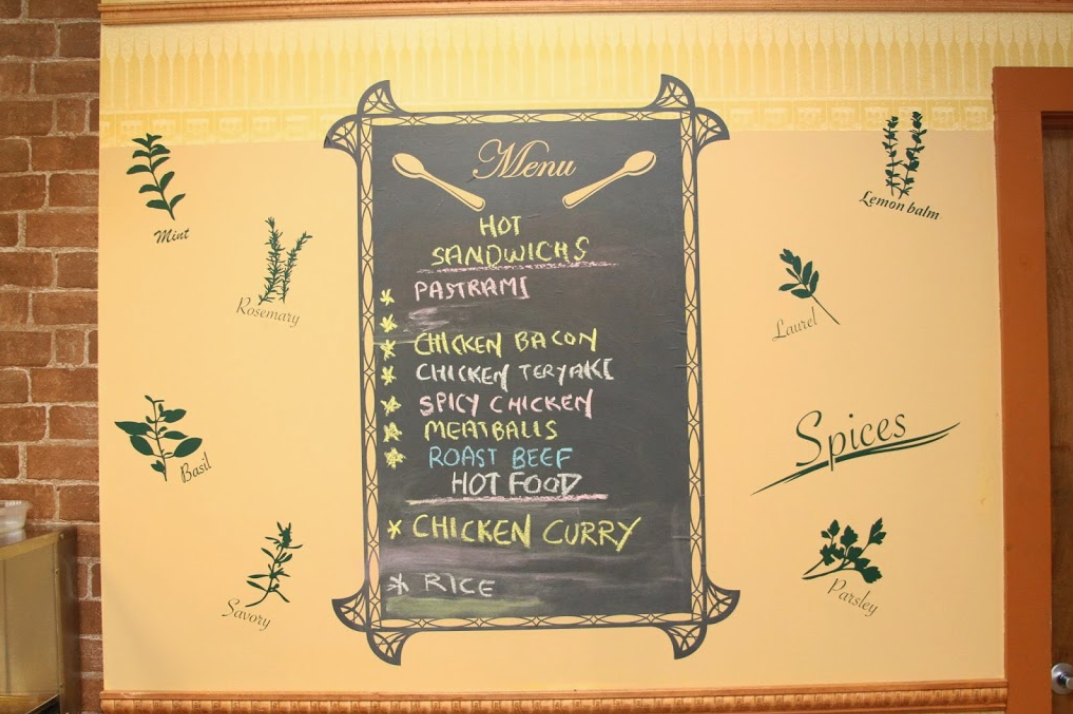 Menu
HOT
SANDWICHS
PASTRAMI
CHICKEN BACON
CHICKEN TERYAKI
SPICY CHICKEN
MEATBALLS
ROAST BEEF
HOT FOOD
CHICKEN CURRY
RICE
Mint
Rosemary
Basil
Savory
Lemon balm
Laurel
Spices
Parsley